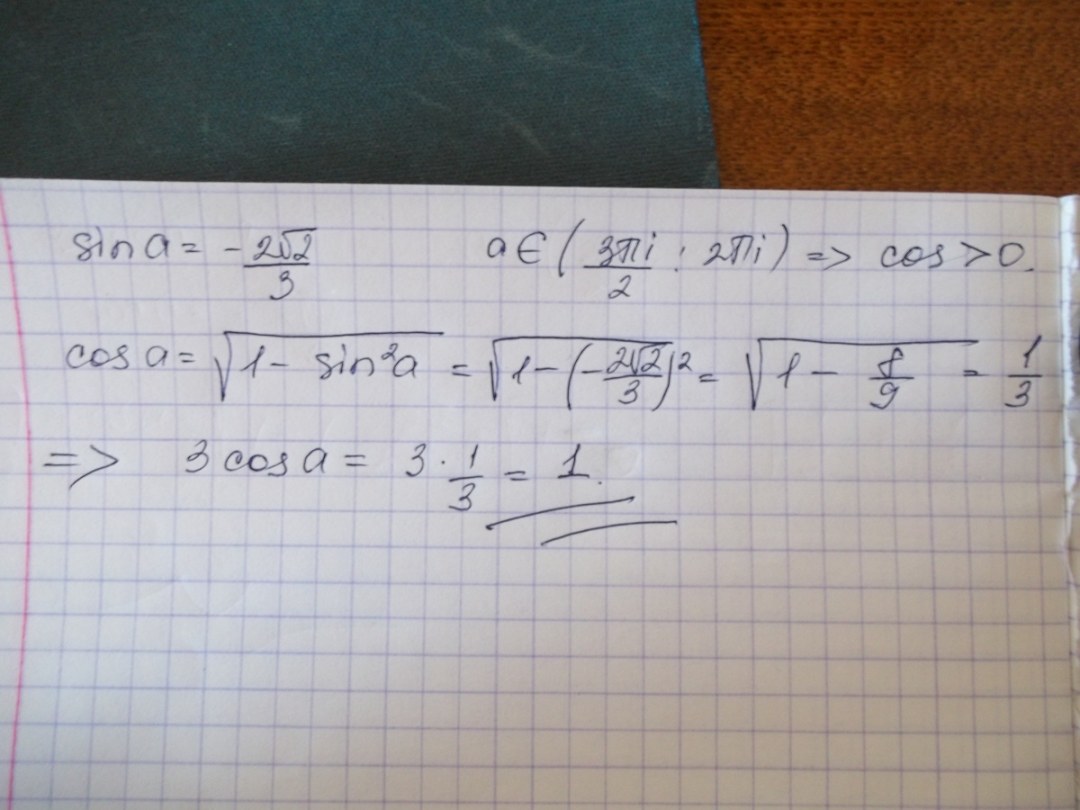 sin a = -2√2/3 a ∈ (3πi/2 ; 2πi) => cos > 0.
cos a = √(1 - sin²a) = √(1 - (-2√2/3)²) = √(1 - 8/9) = 1/3
=> 3 cos a = 3 · 1/3 = 1.